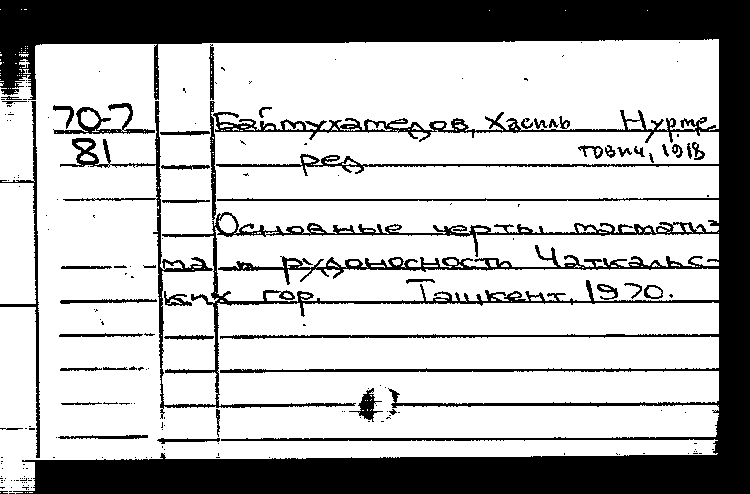 70-7
Баймухамедов, Хасиль Нурме-
81
товия, 1918
ред
Основные черты магматиз
ма и рудоносности Чаткальс-
ких гор. Ташкент, 1970.